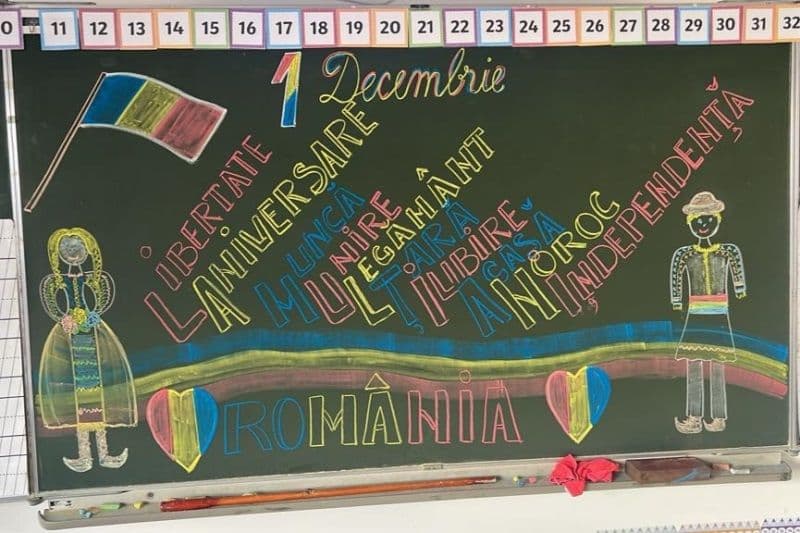 0 11 12 13 14 15 16 17 18 19 20 21 22 23 24 25 26 27 28 29 30 31 32
1 Decembrie
LIBERTATE
ANIVERSARE
MUNCĂ
UNIRE
LEGĂMÂNT
ȚARĂ
IUBIRE
ACASĂ
NOROC
INDEPENDENȚĂ
ROMÂNIA